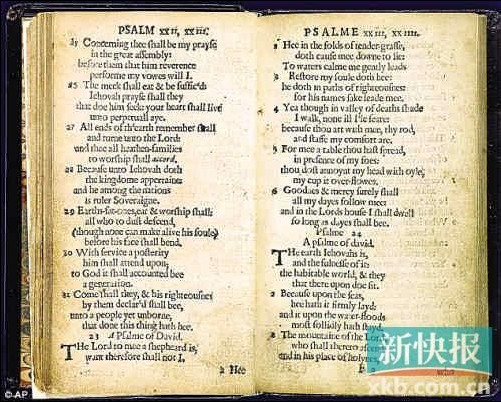 PSALM xxii, xxiii.
25 Concerning thee shall be my prayse
in the great assembly:
before them that him reverence
performe my vowes will I.
26 The meek shall eat & be suffic'd
Iehovah prayse shall they
that doe him seek: your heart shall live
unto perpetuall aye.
27 All ends of th'earth remember shall
and turne unto the Lord:
and thee all heathen-families
to worship shall accord.
28 Because unto Iehovah doth
the kingdome appertaine:
and he among the nations
is ruler Soveraigne.
29 Earths-fat-ones, eat & worship shall:
all who to dust descend,
(though none can make alive his soule)
before his face shall bend.
30 With service a posterity
him shall attend upon;
to God it shall accounted bee
a generation.
31 Come shall they, & his righteousnes
by them declar'd shall bee,
unto a people yet unborne,
that done this thing hath hee.
23 A Psalme of David.
The Lord to mee a shepheard is,
want therefore shall not I.
2 Hee
PSALME xxiii, xxiiii.
2 Hee in the folds of tender-grasse,
doth cause mee downe to lie:
To waters calme me gently leads
3 Restore my soule doth hee:
he doth in paths of righteousnes:
for his names sake leade mee.
4 Yea though in valley of deaths shade
I walk, none ill I'le feare:
because thou art with mee, thy rod,
and staffe my comfort are.
5 For mee a table thou hast spread,
in presence of my foes:
thou dost annoynt my head with oyle,
my cup it over-flowes.
6 Goodnes & mercy surely shall
all my dayes follow mee:
and in the Lords house I shall dwell
so long as dayes shall bee.
Psalme 24
A psalme of david.
The earth Iehovahs is,
and the fulnesse of it:
the habitable world, & they
that there upon doe sit.
2 Because upon the seas,
hee hath it firmly layd:
and it upon the water-floods
most sollidly hath stayd.
3 The mountaine of the Lord,
who shall thereto
and in his place of holynes,
who
© AP
新快报
xkb.com.cn